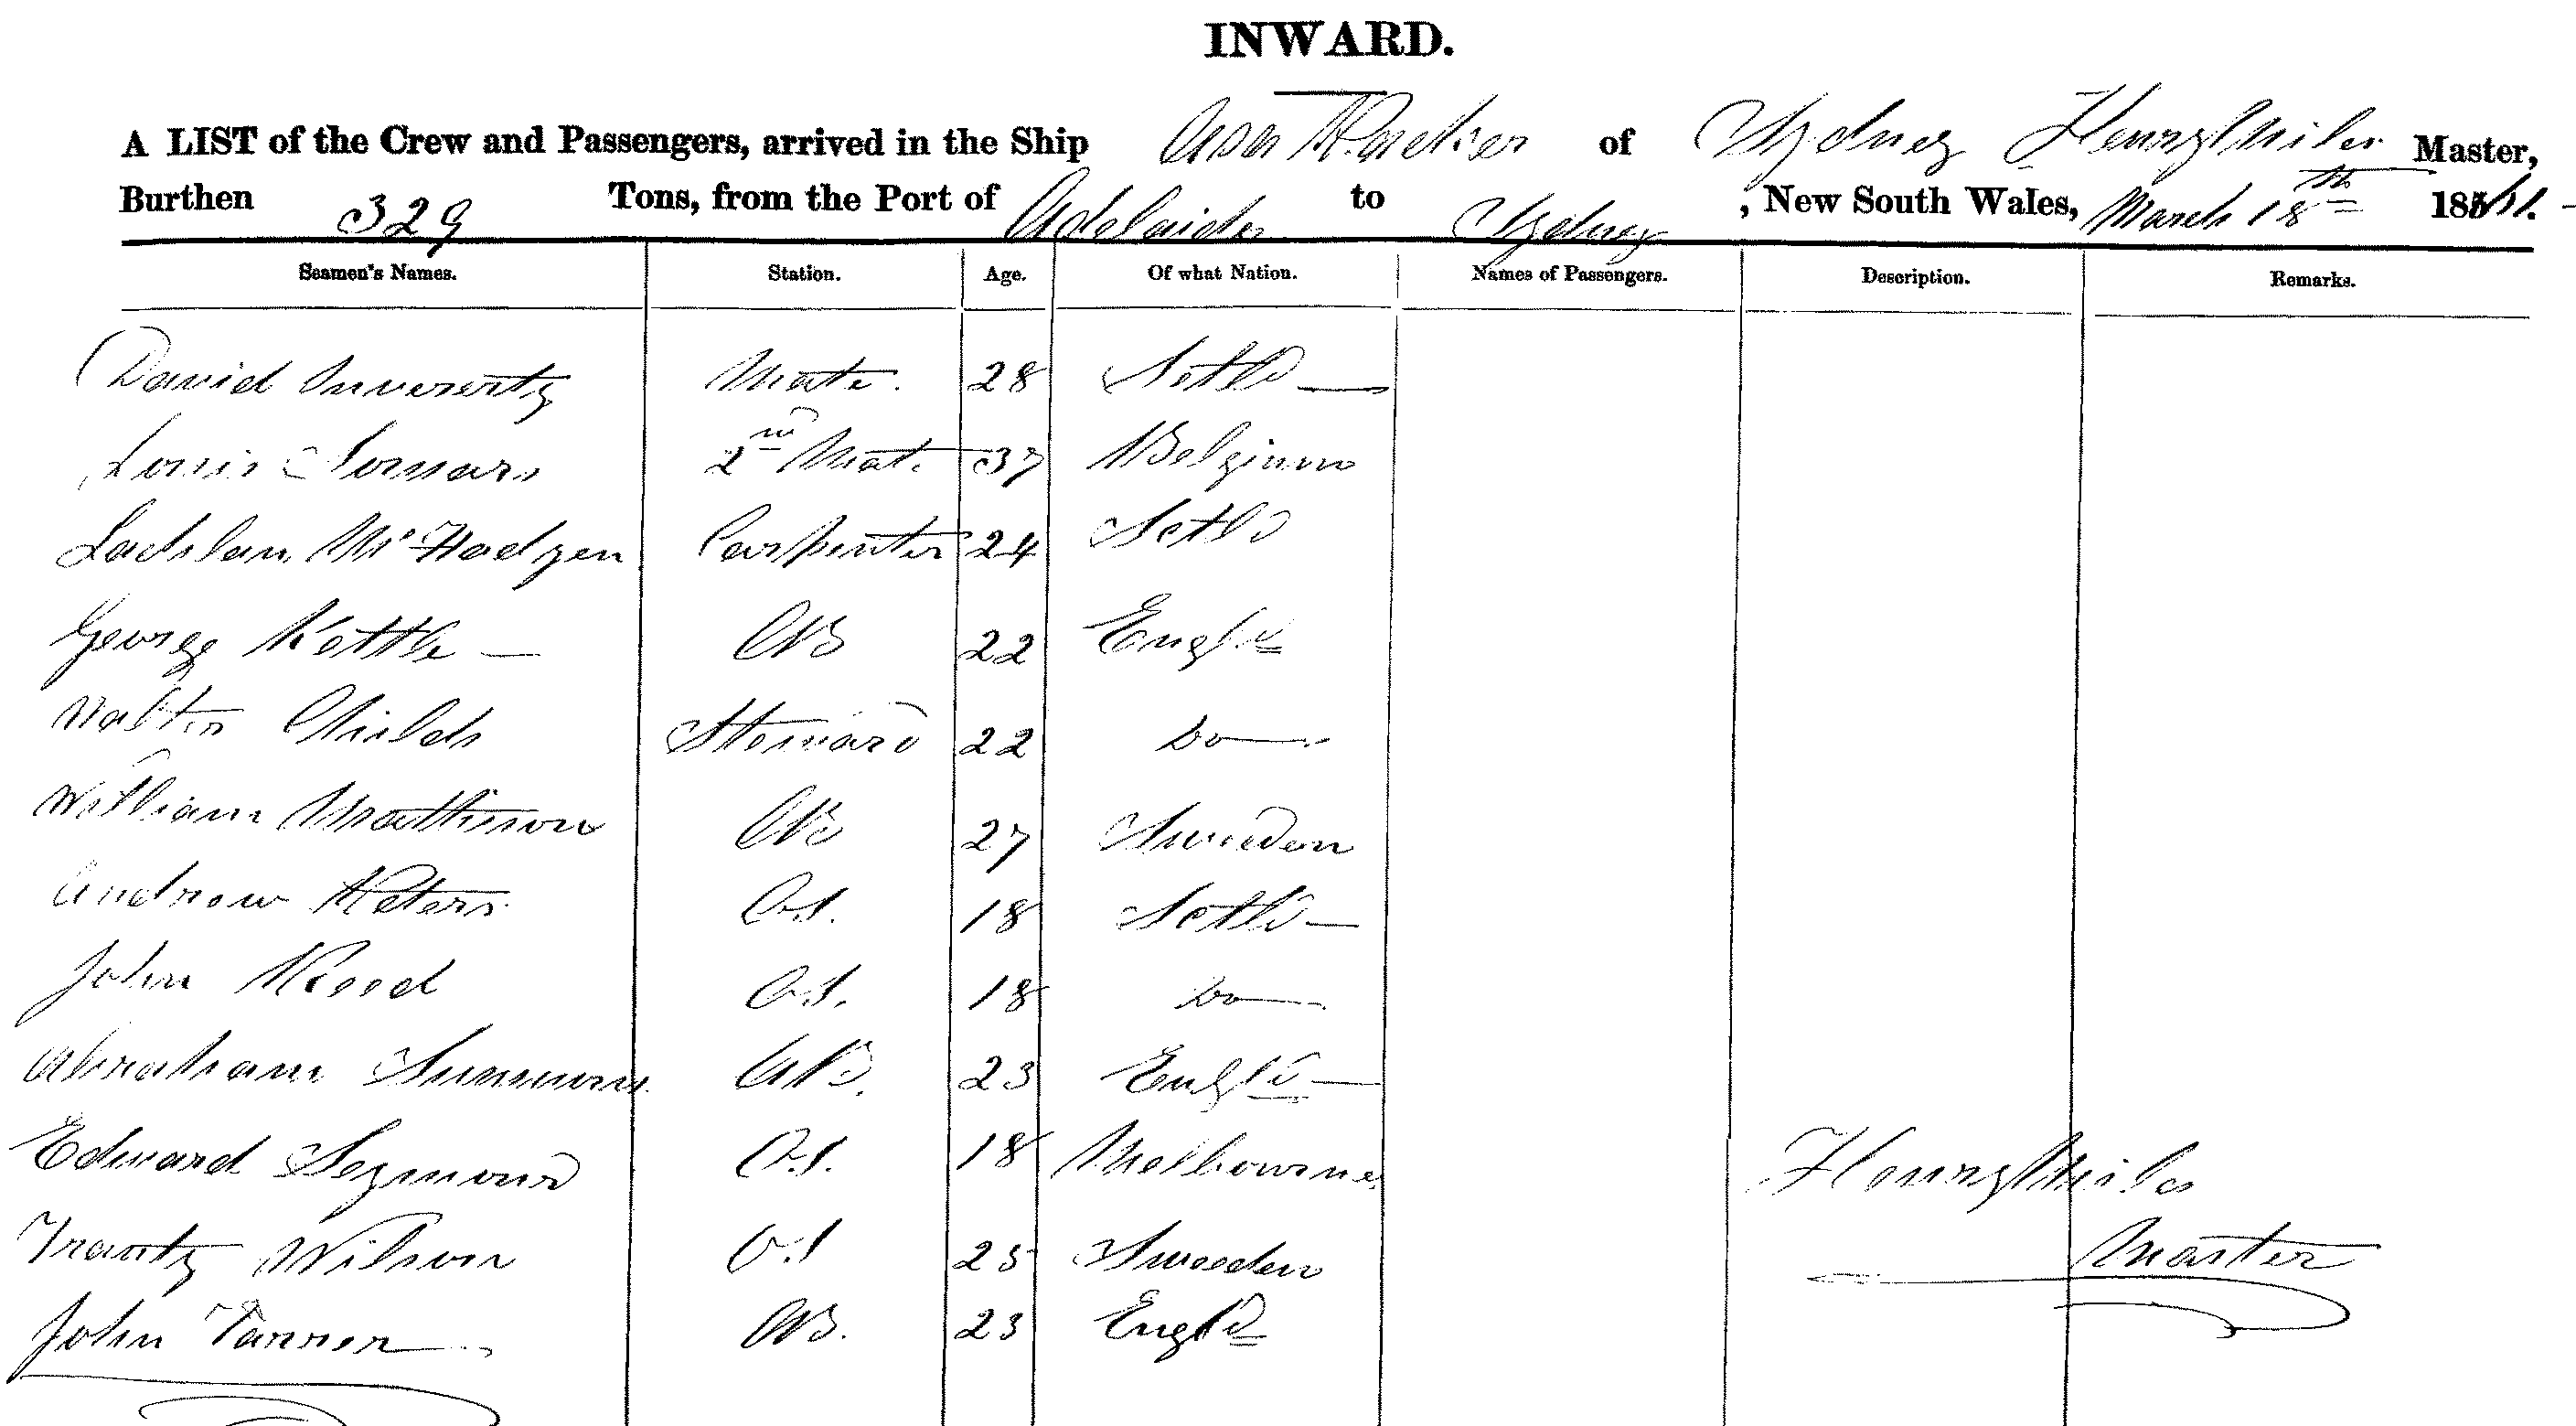 INWARD.
A LIST of the Crew and Passengers, arrived in the Ship Asa Packer of Sydney Henry Miles Master,
Burthen 329 Tons, from the Port of Adelaide to Sydney, New South Wales, March 18th 1861.
Seamen's Names. Station. Age. Of what Nation. Names of Passengers. Description. Remarks.
David Mate. 28 Sctld
Louis 2nd Mate 37 Belgium
Lachlan Carpenter 24 Sctld
George Kettle AB 22 Engld
Walter Childs Steward 22 Do
William Mattinson AB 27 Sweden
Andrew Peters O.S. 18 Sctld
John O.S. 18 Do
Abraham AB. 23 Engld
Edward Seymour O.S. 18 Melbourne
Frantz Wilson O.S 25 Sweeden
John Tanner AB. 23 Engld
Henry Miles
Master